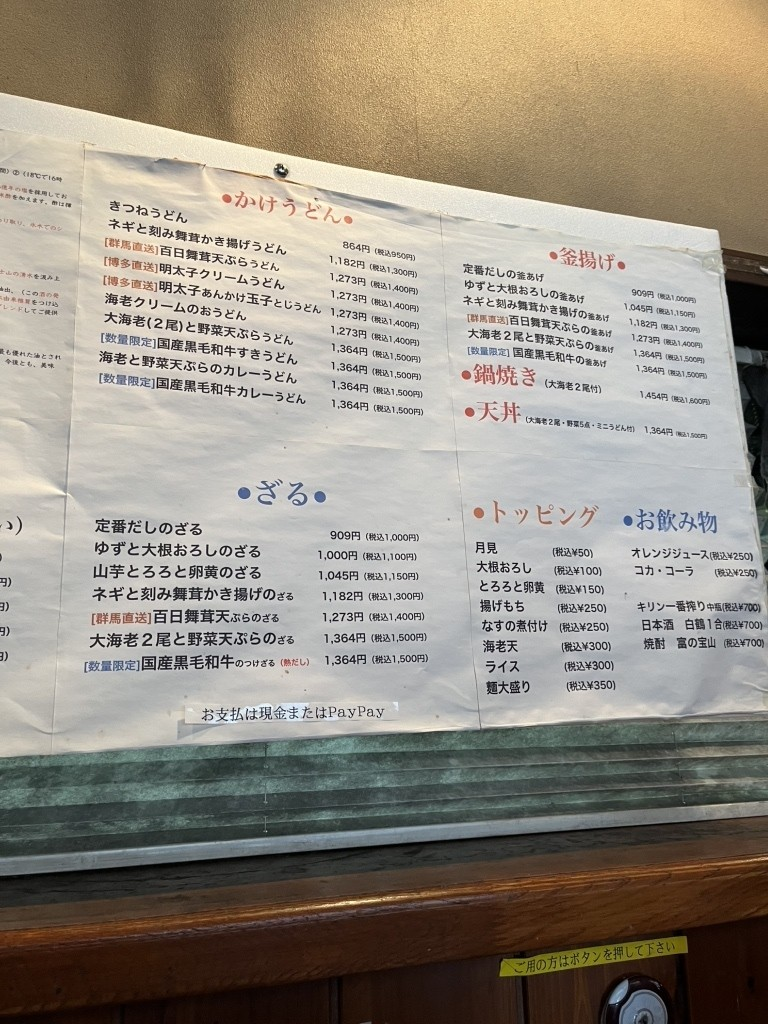 間）②（18℃で16時
●かけうどん●
きつねうどん 864円（税込950円）
ネギと刻み舞茸かき揚げうどん 1,182円（税込1,300円）
[群馬直送]百日舞茸天ぷらうどん 1,273円（税込1,400円）
[博多直送]明太子クリームうどん 1,273円（税込1,400円）
[博多直送]明太子あんかけ玉子とじうどん 1,273円（税込1,400円）
海老クリームのおうどん 1,273円（税込1,400円）
大海老(２尾)と野菜天ぷらうどん 1,364円（税込1,500円）
[数量限定]国産黒毛和牛すきうどん 1,364円（税込1,500円）
海老と野菜天ぷらのカレーうどん 1,364円（税込1,500円）
[数量限定]国産黒毛和牛カレーうどん 1,364円（税込1,500円）
●釜揚げ●
定番だしの釜あげ 909円（税込1,000円）
ゆずと大根おろしの釜あげ 1,045円（税込1,150円）
ネギと刻み舞茸かき揚げの釜あげ 1,182円（税込1,300円）
[群馬直送]百日舞茸天ぷらの釜あげ 1,273円（税込1,400円）
大海老２尾と野菜天ぷらの釜あげ 1,364円（税込1,500円）
[数量限定] 国産黒毛和牛の釜あげ 1,364円（税込1,500円）
●鍋焼き（大海老２尾付） 1,454円（税込1,600円）
●天丼（大海老２尾・野菜5点・ミニうどん付） 1,364円（税込1,500円）
●ざる●
定番だしのざる 909円（税込1,000円）
ゆずと大根おろしのざる 1,000円（税込1,100円）
山芋とろろと卵黄のざる 1,045円（税込1,150円）
ネギと刻み舞茸かき揚げのざる 1,182円（税込1,300円）
[群馬直送]百日舞茸天ぷらのざる 1,273円（税込1,400円）
大海老２尾と野菜天ぷらのざる 1,364円（税込1,500円）
[数量限定]国産黒毛和牛のつけざる（熱だし） 1,364円（税込1,500円）
お支払は現金またはPayPay
●トッピング
月見 (税込¥50)
大根おろし (税込¥100)
とろろと卵黄 (税込¥150)
揚げもち (税込¥250)
なすの煮付け (税込¥250)
海老天 (税込¥300)
ライス (税込¥300)
麺大盛り (税込¥350)
●お飲み物
オレンジジュース(税込¥250)
コカ・コーラ (税込¥250)
キリン一番搾り中瓶(税込¥700)
日本酒 白鶴１合(税込¥700)
焼酎 富の宝山 (税込¥700)
ご用の方はボタンを押して下さい